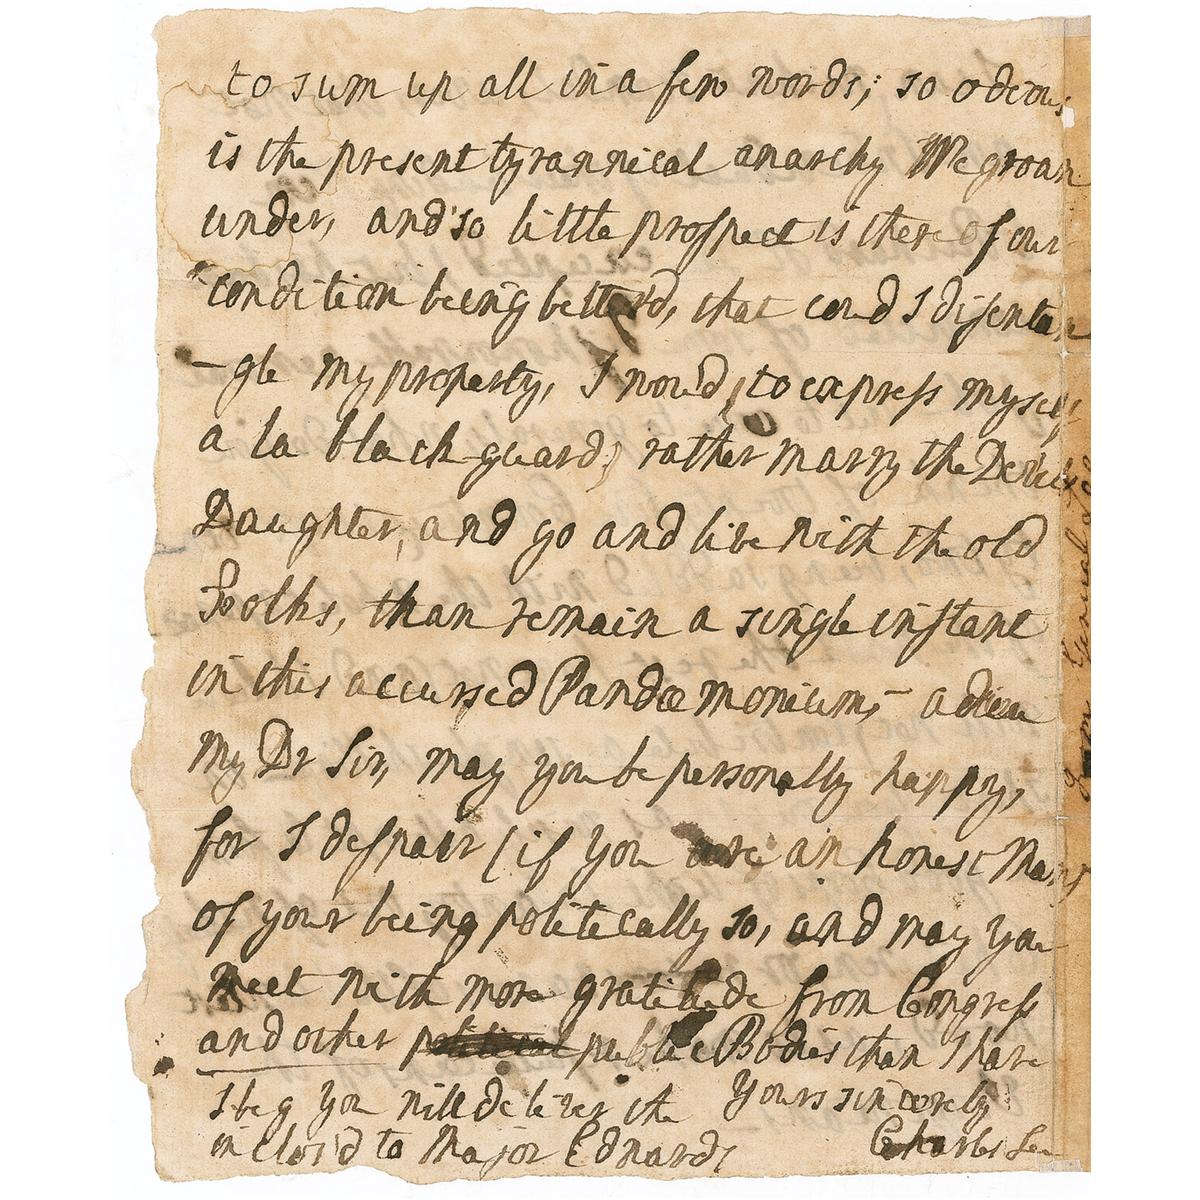 to sum up all in a few words; so odious
is the present tyrannical anarchy We groan
under, and so little prospect is there of our
condition being better'd, that cou'd I disentan
-gle my property, I wou'd, to express myself
a la black-guard, rather marry the Devil's
Daughter, and go and live with the old
Folks, than remain a single instant
in this accursed Pandæmonium, - adieu
My Dr Sir, may you be personally happy,
for I despair (if you are an honest Man)
of your being politically so, and may you
meet with more gratitude from Congress
and other political public Bodies than I have
Yours sincerely
Charles Lee
I beg you will deliver the
inclos'd to Major Edwards